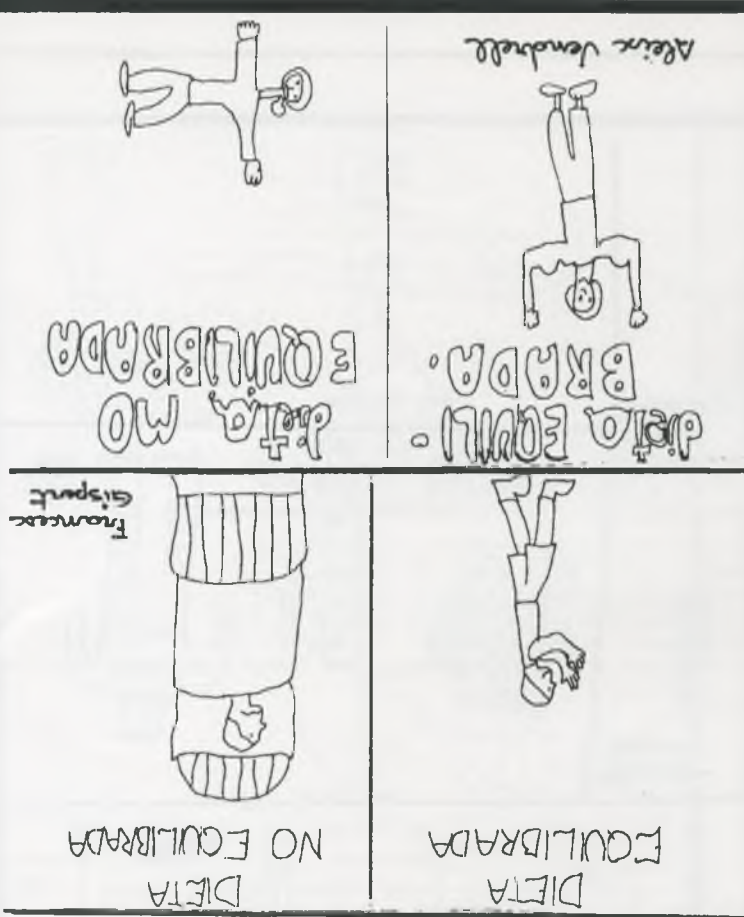 DIETA
EQUILIBRADA
DIETA
NO EQUILIBRADA
Francesc
Gispert
dieta EQUILI-
BRADA.
Aleix Vendrell
dieta NO
EQUILIBRADA